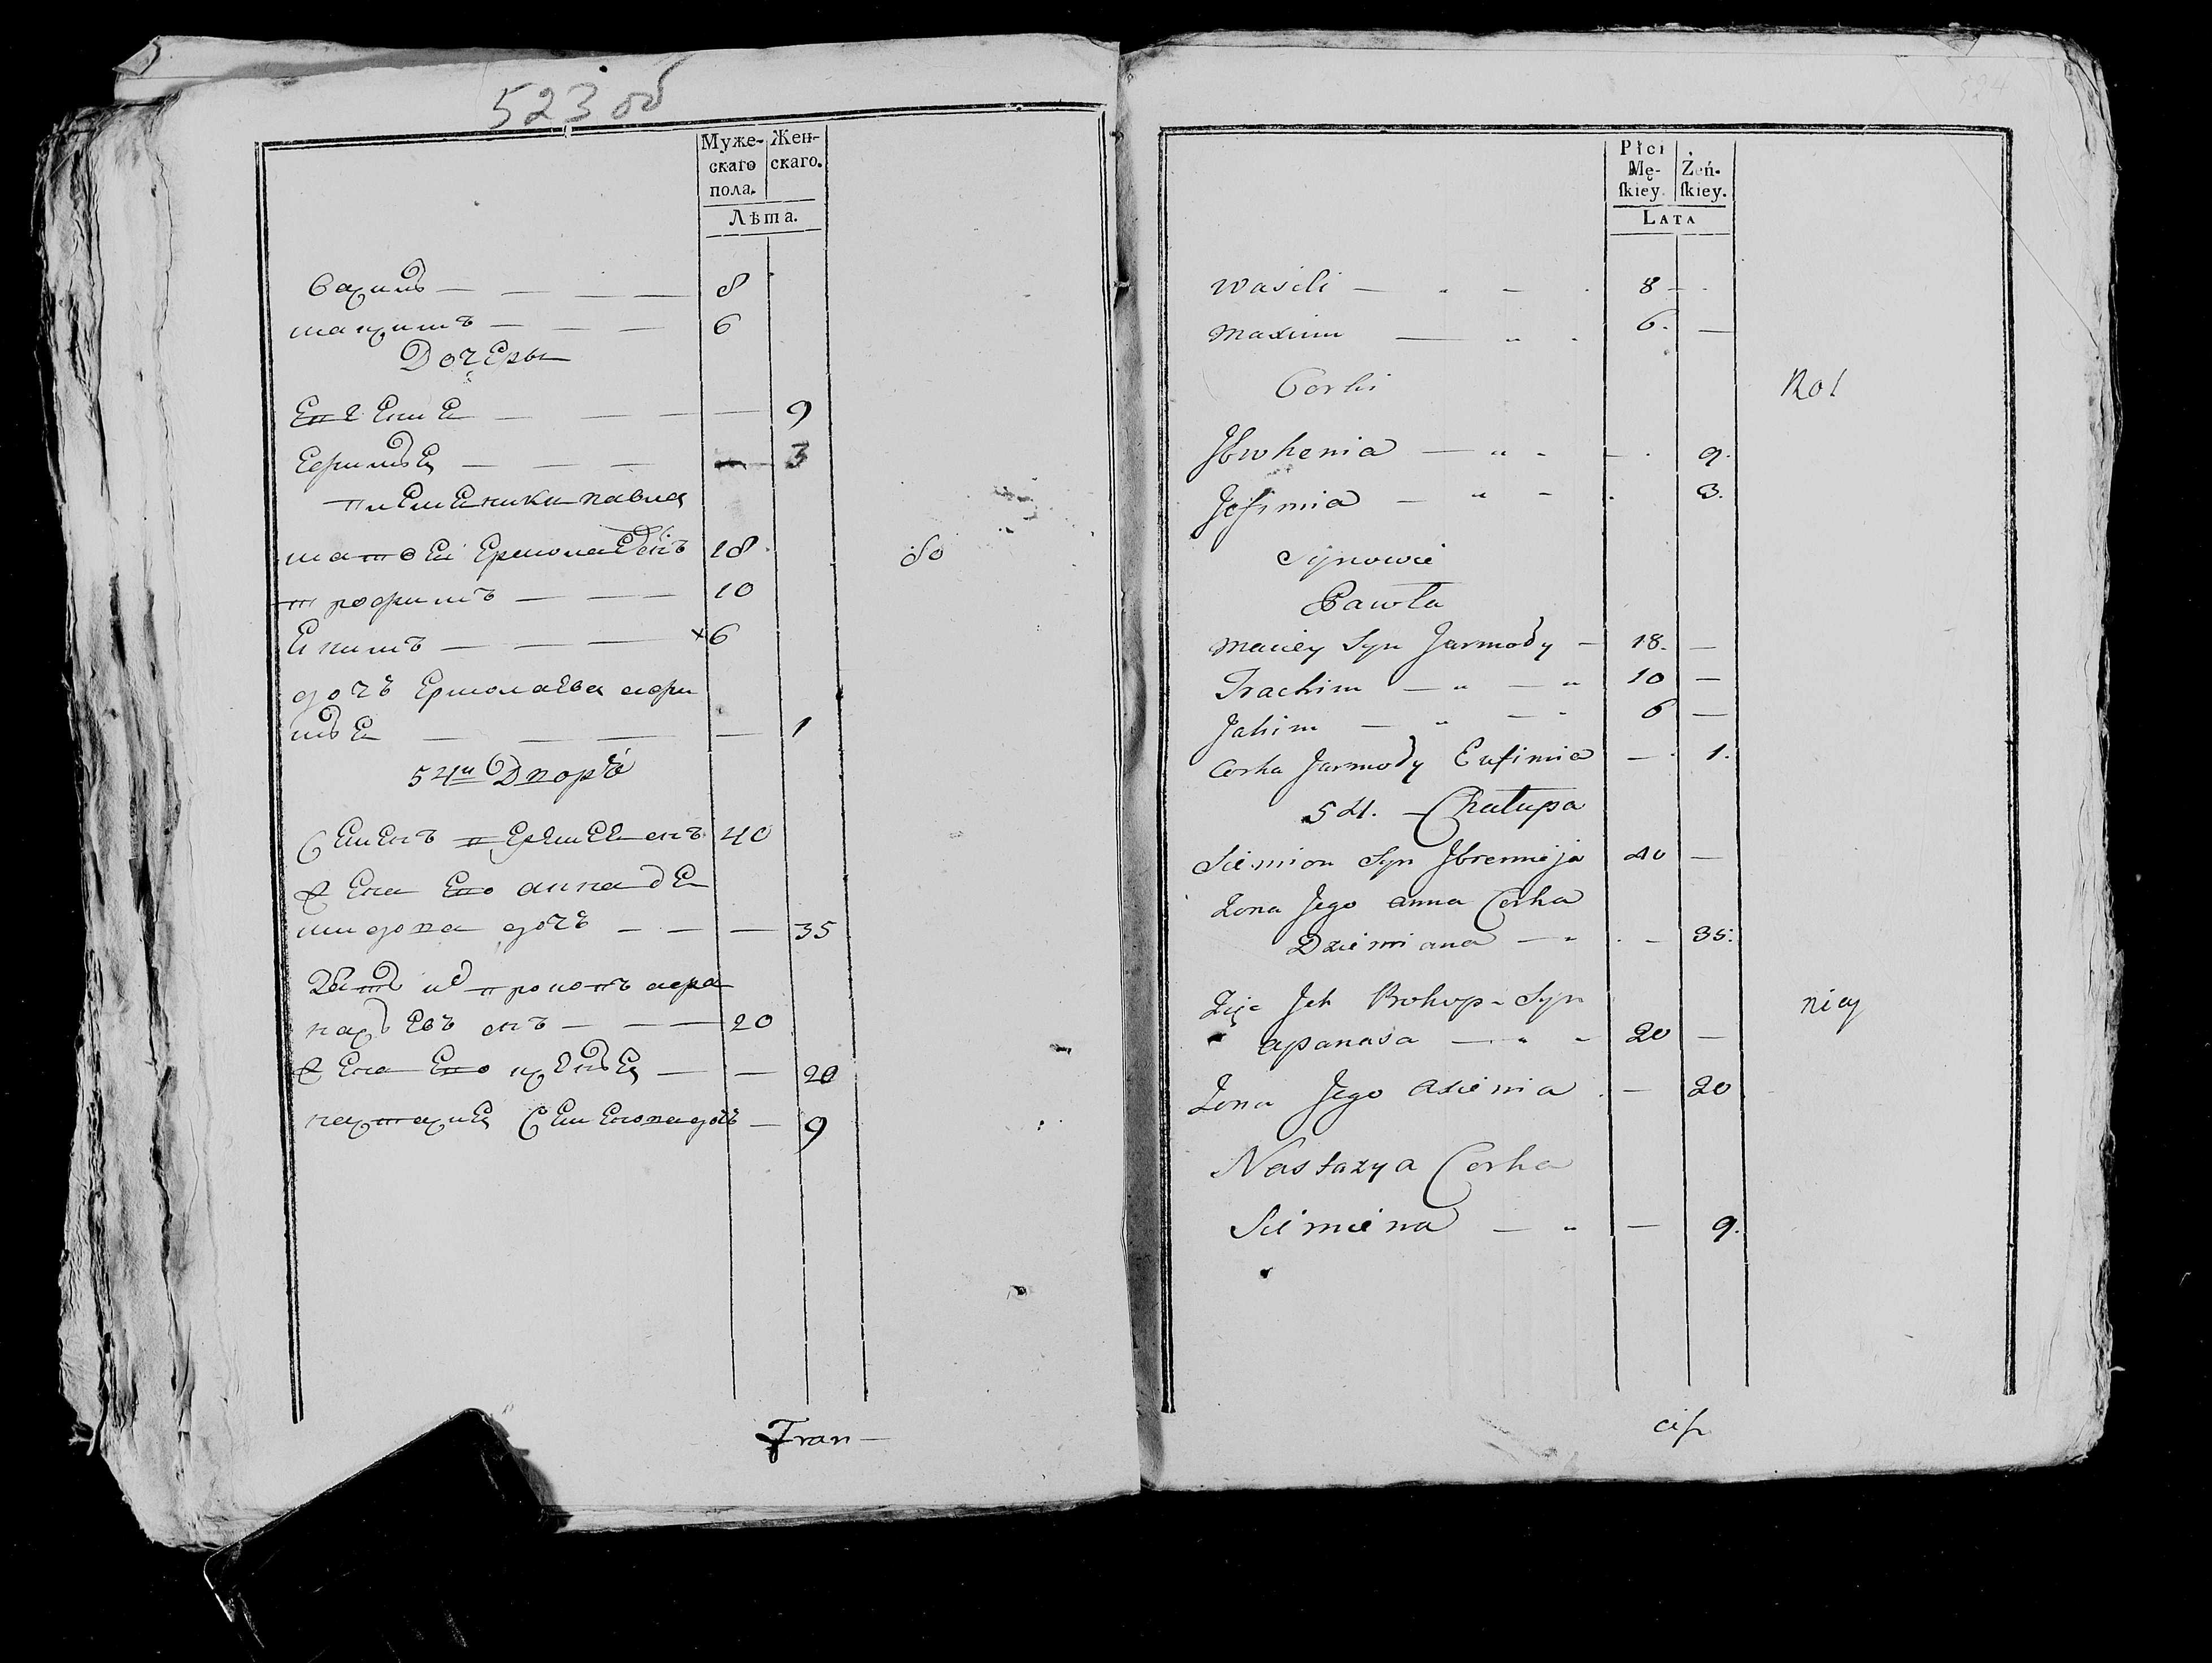 523 об
Муже-
скаго
пола.
Жен-
скаго.
Лѣта.
Василь — — — — 8
максимъ — — — 6
Дочеры
Евгения — — — — 9
Ефимья — — — — 3
племеники павла
матвей Ермолаевъ 18
трофимъ — — — 10
Екимъ — — — ×6
дочъ Ермолаева афи
мья — — — — 1
54й Дворъ
Семенъ 40
Жена Ево анна де
мидова дочь — — — 35
Зять их прокопъ афа
насьевъ — — — 20
Жена Ево — — 20
настасия Семенова дочь — 9
80
Fran—
524
Płci
Mę-
ſkiey.
Żeń-
ſkiey.
LATA
Wasili — " — 8 —
Maxim — " 6. —
Corki
Jewhenia — " — 9.
Jefimia — " — 3.
Synowie
Pawła
Maciey Syn Jarmoły — 18. —
Trachim — " — " 10 —
Jakim — " — 6 —
Corka Jarmoły Eufimia — 1.
54. Chałupa
Siemion Syn Jeremieja 40 —
Żona Jego anna Corka
Dziemiana — " — 35.
Zięć Ich Prokop Syn
apanasa — " — 20 —
Żona Jego axienia . — 20
Nastazya Corka
Siemiena — " — 9.
Rol
nicy
cisz